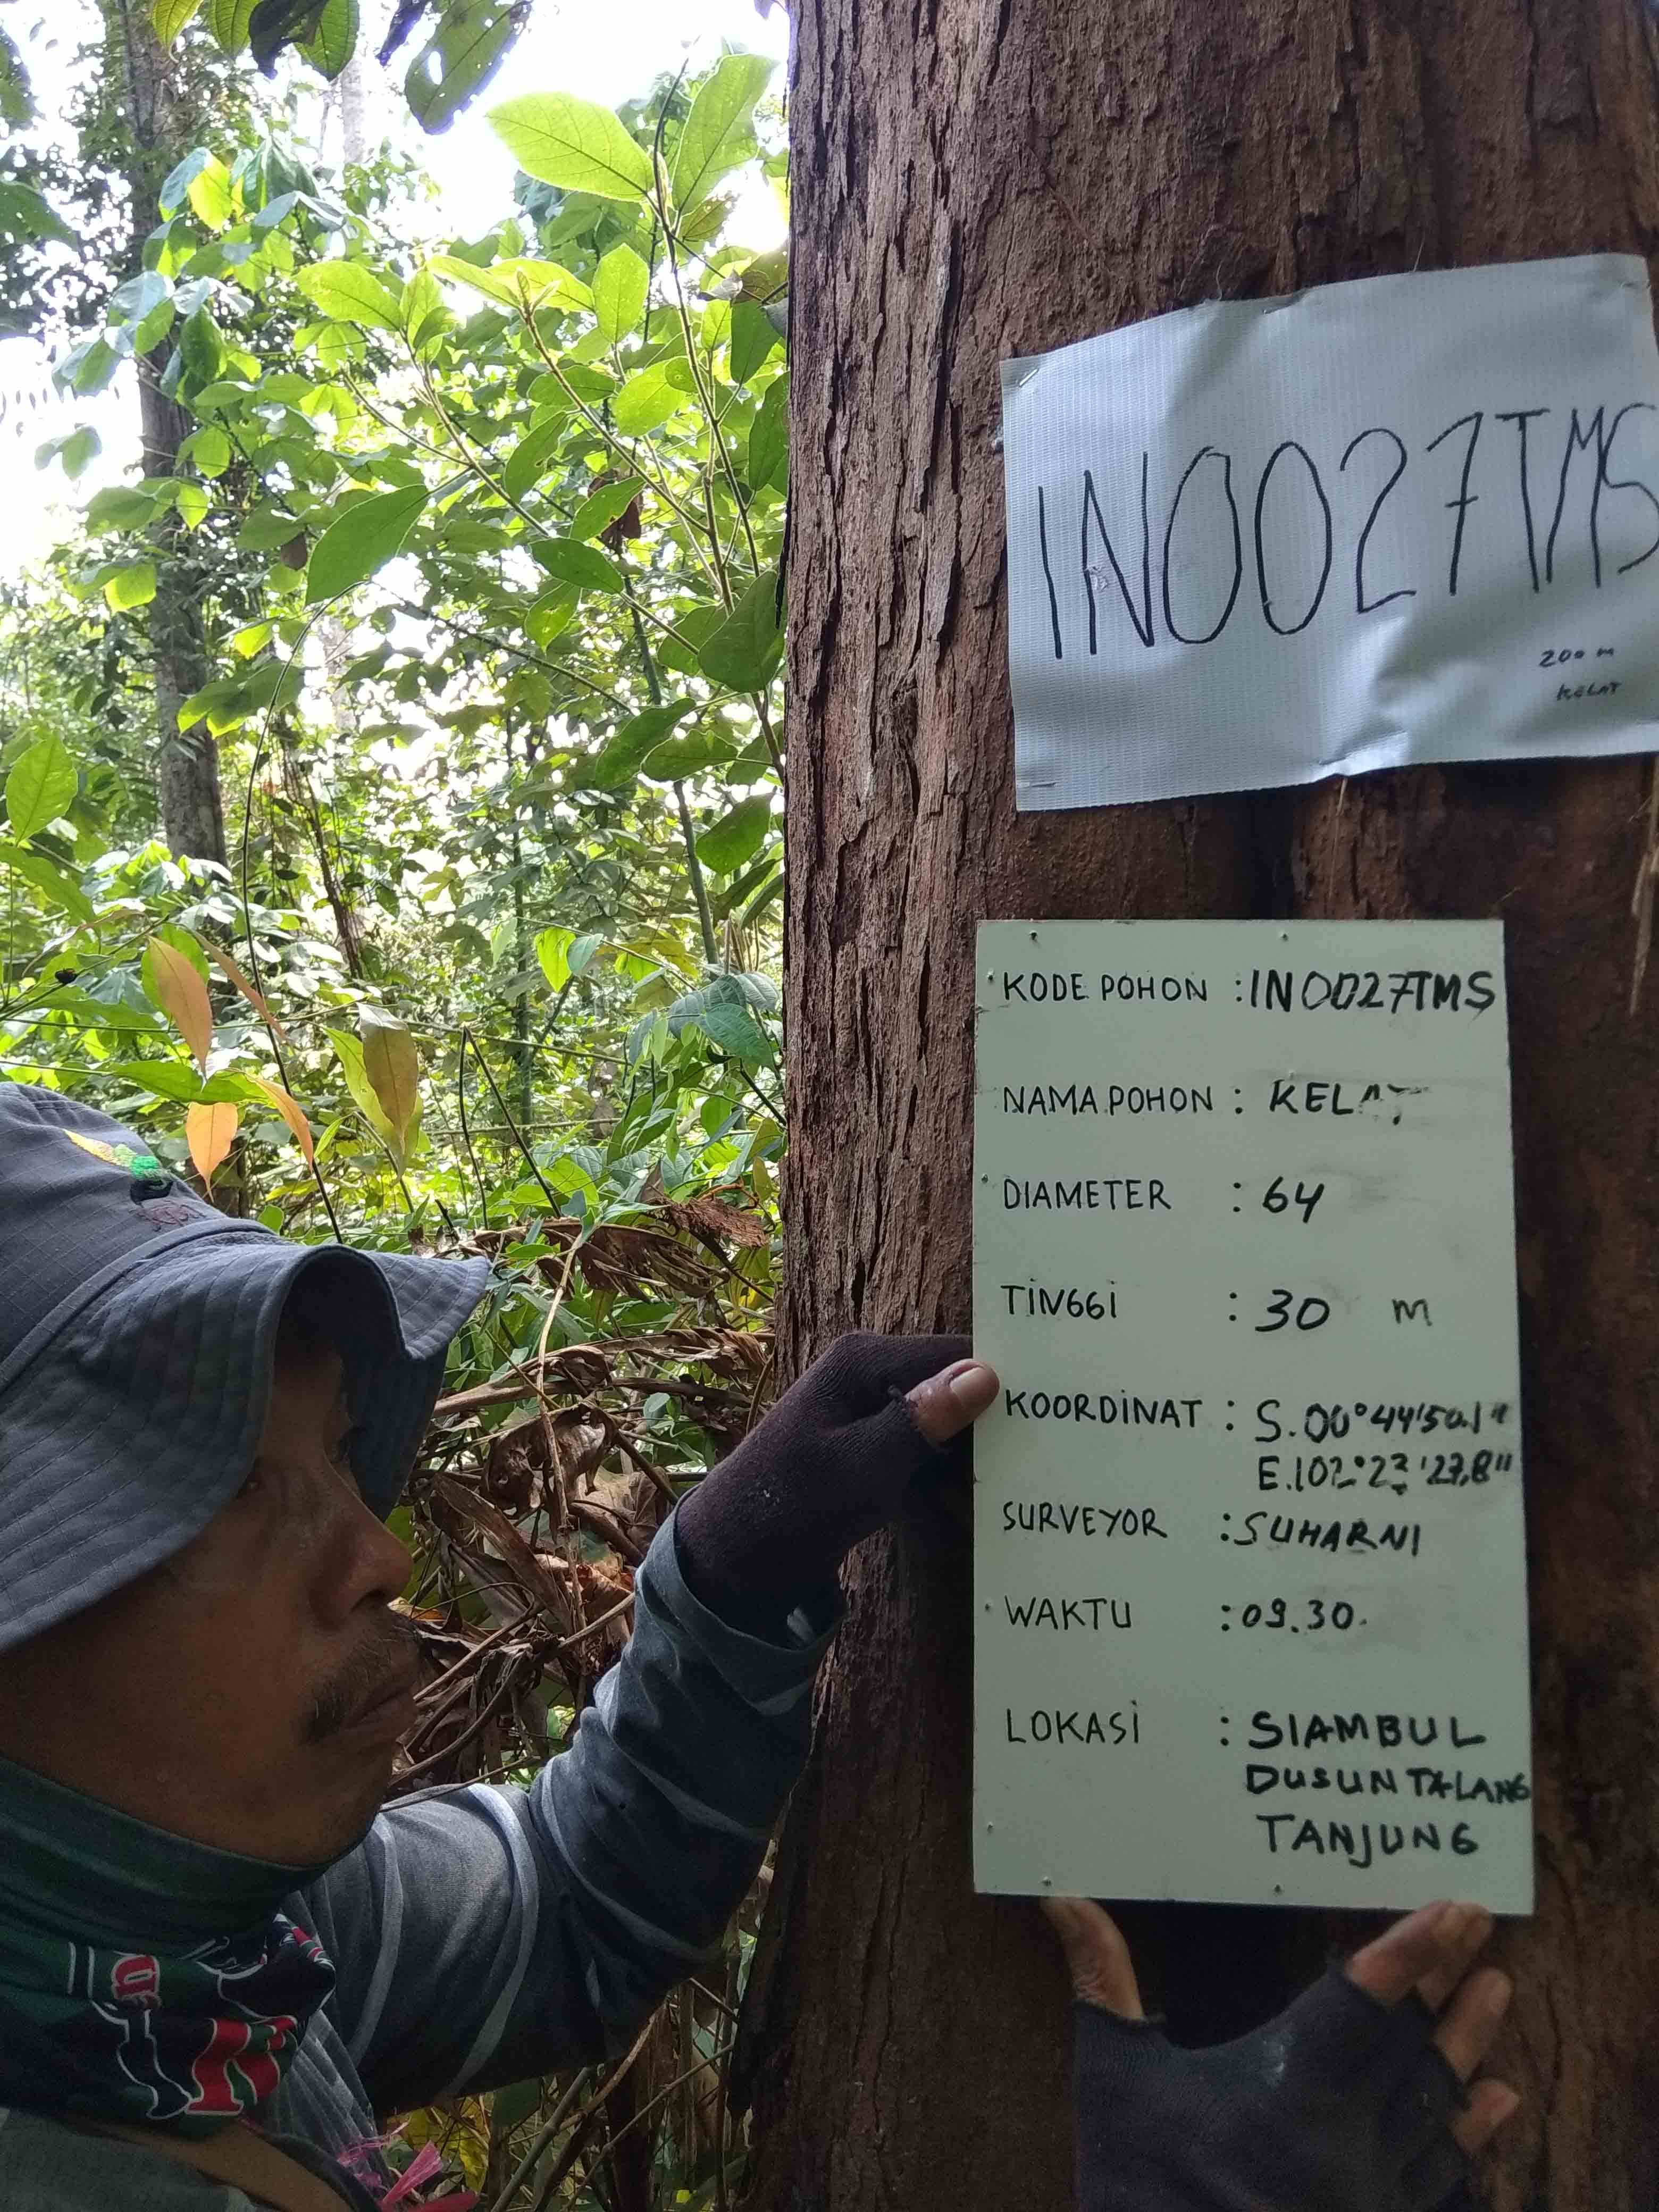 IN0027TMS
200 m
KELAT
KODE POHON : IN0027TMS
NAMA POHON : KELAT
DIAMETER : 64
TINGGI : 30 M
KOORDINAT : S.00°44'50.1"
E.102°23'27,8"
SURVEYOR : SUHARNI
WAKTU : 09.30.
LOKASI : SIAMBUL
DUSUN TALANG
TANJUNG